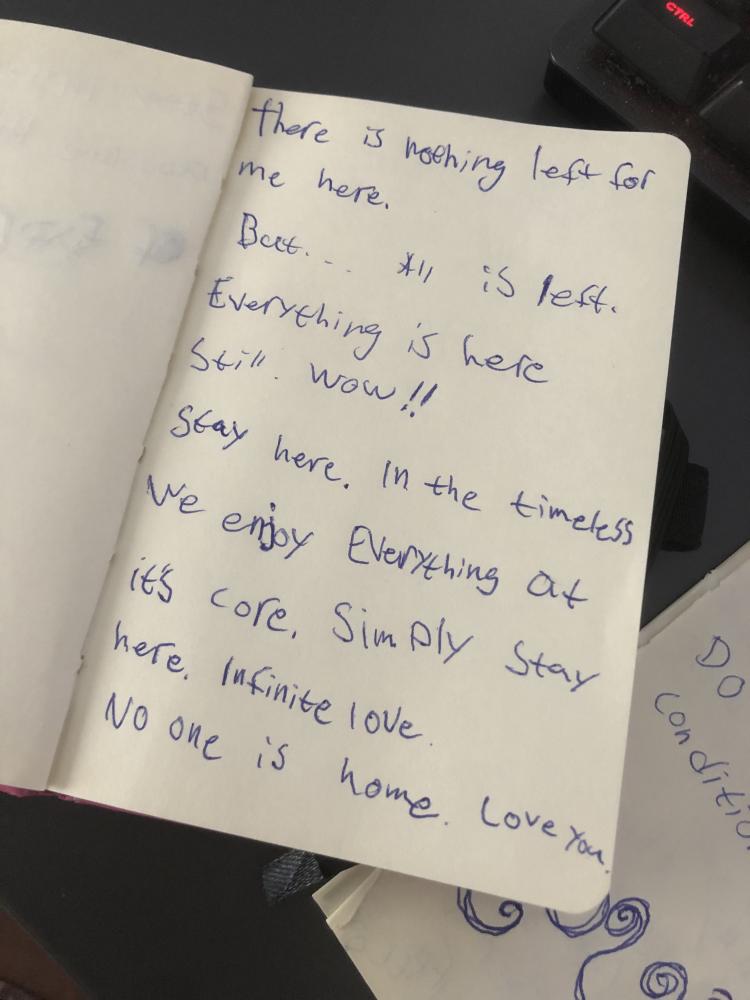 CTRL
there is nothing left for
me here.
But... All is left.
Everything is here
Still. wow!!
Stay here. In the timeless
We enjoy Everything at
it's core. Simply Stay
here. Infinite love.
No one is home. Love you.
DO
conditio